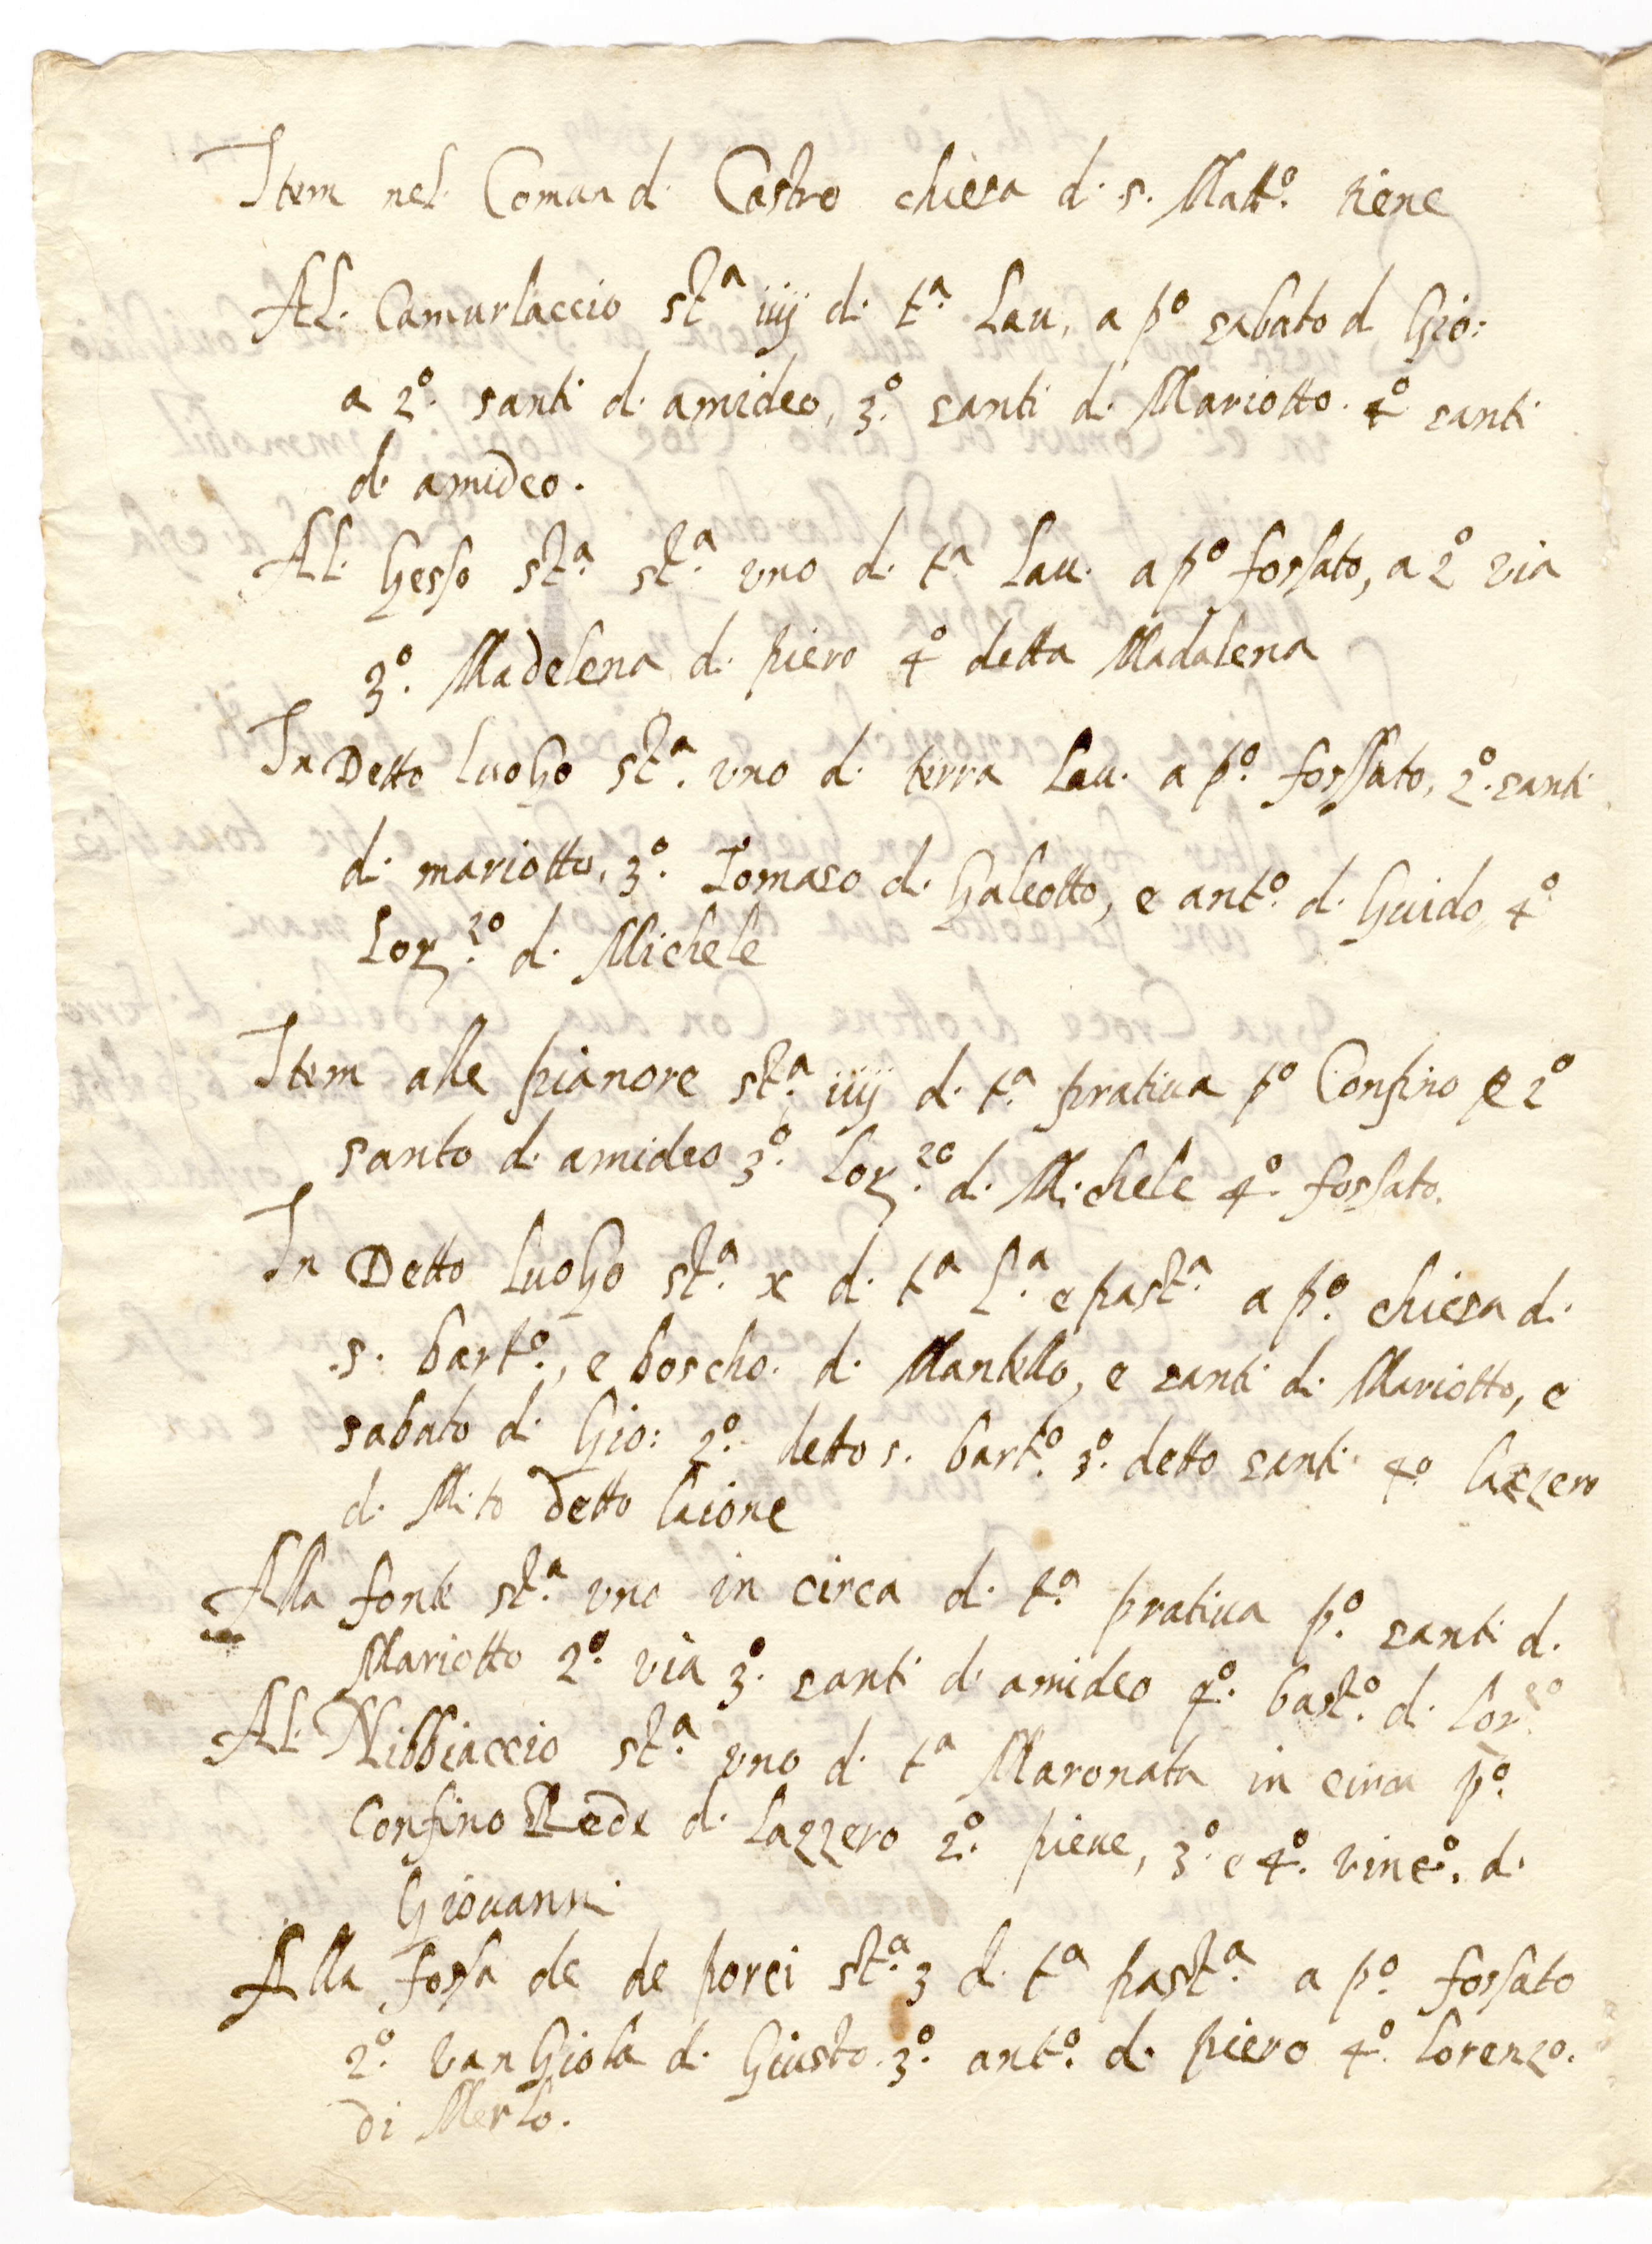 Item nel Comun d. Castro chiesa d. s. Matt.o tiene
Al. Camurlaccio st.a iiij d. t.a Lau. a p.o sabato d Gio:
a 2.o santi d. amideo, 3.o santi d. Mariotto. 4.o santi
d. amideo.
Al. Gesso st.a st.a uno d. t.a Lau. a p.o fossato, a 2.o via
3.o Madelena d. piero 4.o detta Madalena
In Detto luogo st.a uno d. terra Lau. a p.o fossato, 2.o santi
d. mariotto, 3.o Tomaso d. Galeotto, e ant.o d. Guido, 4.o
Lor.zo d. Michele
Item alle pianore st.a iiij d. t.a pratiua p.o Confino e 2.o
santo d. amideo 3.o Lor.zo d. Michele 4.o fossato.
In Detto luogo st.a x d. t.a L.a e past.a a p.o chiesa d.
s. bart.o, e boscho. d. Mantello, e santi d. Mariotto, e
sabato d. Gio: 2.o detto s. bart.o 3.o detto santi 4.o Lazzero
d. Mito detto laione
Alla fonte st.a uno in circa d. t.a pratiua p.o santi d.
Mariotto 2.o via 3.o santi d. amideo 4.o bast.o d. Lor.zo
Al. Nibbiaccio st.a uno d. t.a Maronata in circa p.o
Confino Rede d. Lazzero 2.o pieue, 3.o e 4.o vinc.o d.
Giouanni
Alla fossa de de porci st.a 3 d. t.a past.a a p.o fossato
2.o vangiola d. Giusto. 3.o ant.o d. piero 4.o lorenzo.
di Merlo.